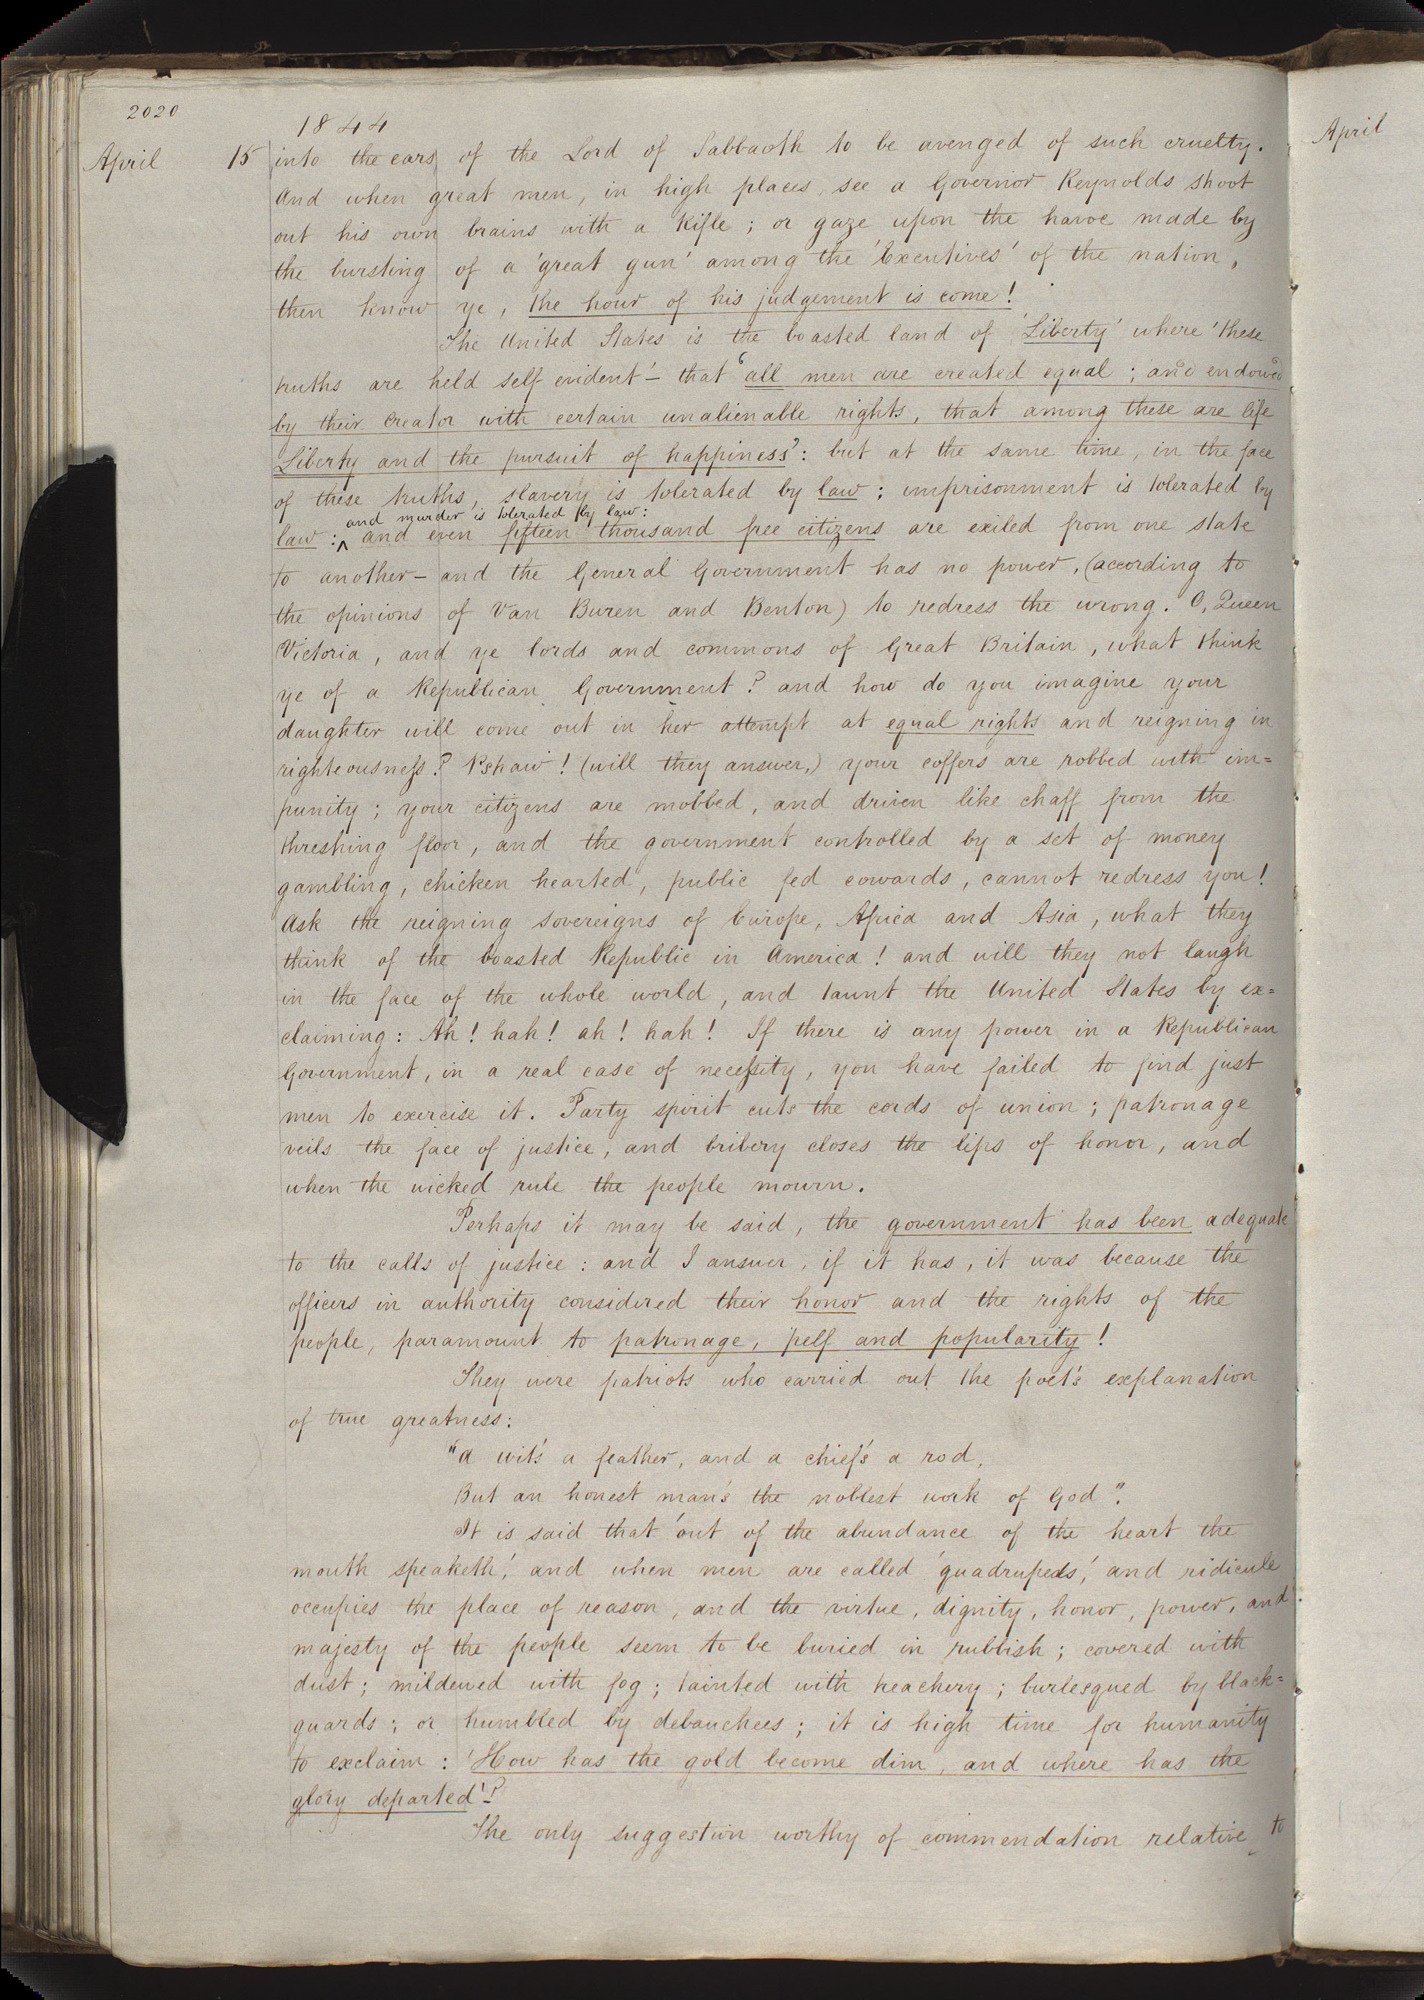 2020
1844
April 15 into the ears of the Lord of Sabbaoth to be avenged of such cruelty.
And when great men, in high places, see a Governor Reynolds shoot
out his own brains with a Rifle; or gaze upon the havoc made by
the bursting of a 'great gun' among the 'Executives' of the nation,
then know ye, the hour of his judgement is come!
The United States is the boasted land of 'Liberty' where 'these
truths are held self evident'— that 'all men are created equal; and endowed
by their creator with certain unalienable rights, that among these are life
Liberty and the pursuit of happiness': but at the same time, in the face
of these truths, slavery is tolerated by law; imprisonment is tolerated by
and murder is tolerated by law:
law:^ and even fifteen thousand free citizens are exiled from one state
to another— and the General Government has no power, (according to
the opinions of Van Buren and Benton) to redress the wrong. O, Queen
Victoria, and ye lords and commons of Great Britain, what think
ye of a Republican Government? and how do you imagine your
daughter will come out in her attempt at equal rights and reigning in
righteousness? Pshaw! (will they answer,) your coffers are robbed with im=
punity; your citizens are mobbed, and driven like chaff from the
threshing floor, and the government controlled by a set of money
gambling, chicken hearted, public fed cowards, cannot redress you!
Ask the reigning sovereigns of Europe, Africa and Asia, what they
think of the boasted Republic in America! and will they not laugh
in the face of the whole world, and taunt the United States by ex=
claiming: Ah! hah! ah! hah! If there is any power in a Republican
Government, in a real case of necessity, you have failed to find just
men to exercise it. Party spirit cuts the cords of union; patronage
veils the face of justice, and bribery closes the lips of honor, and
when the wicked rule the people mourn.
Perhaps it may be said, the government has been adequate
to the calls of justice: and I answer, if it has, it was because the
officers in authority considered their honor and the rights of the
people, paramount to patronage, pelf and popularity!
They were patriots who carried out the poet's explanation
of true greatness:
"A wit's a feather, and a chief's a rod,
But an honest man's the noblest work of God".
It is said that 'out of the abundance of the heart the
mouth speaketh', and when men are called 'quadrupeds,' and ridicule
occupies the place of reason, and the virtue, dignity, honor, power, and
majesty of the people seem to be buried in rubbish; covered with
dust; mildewed with fog; tainted with treachery; burlesqued by black=
guards; or humbled by debauchees; it is high time for humanity
to exclaim: 'How has the gold become dim, and where has the
glory departed'?
The only suggestion worthy of commendation relative to
April